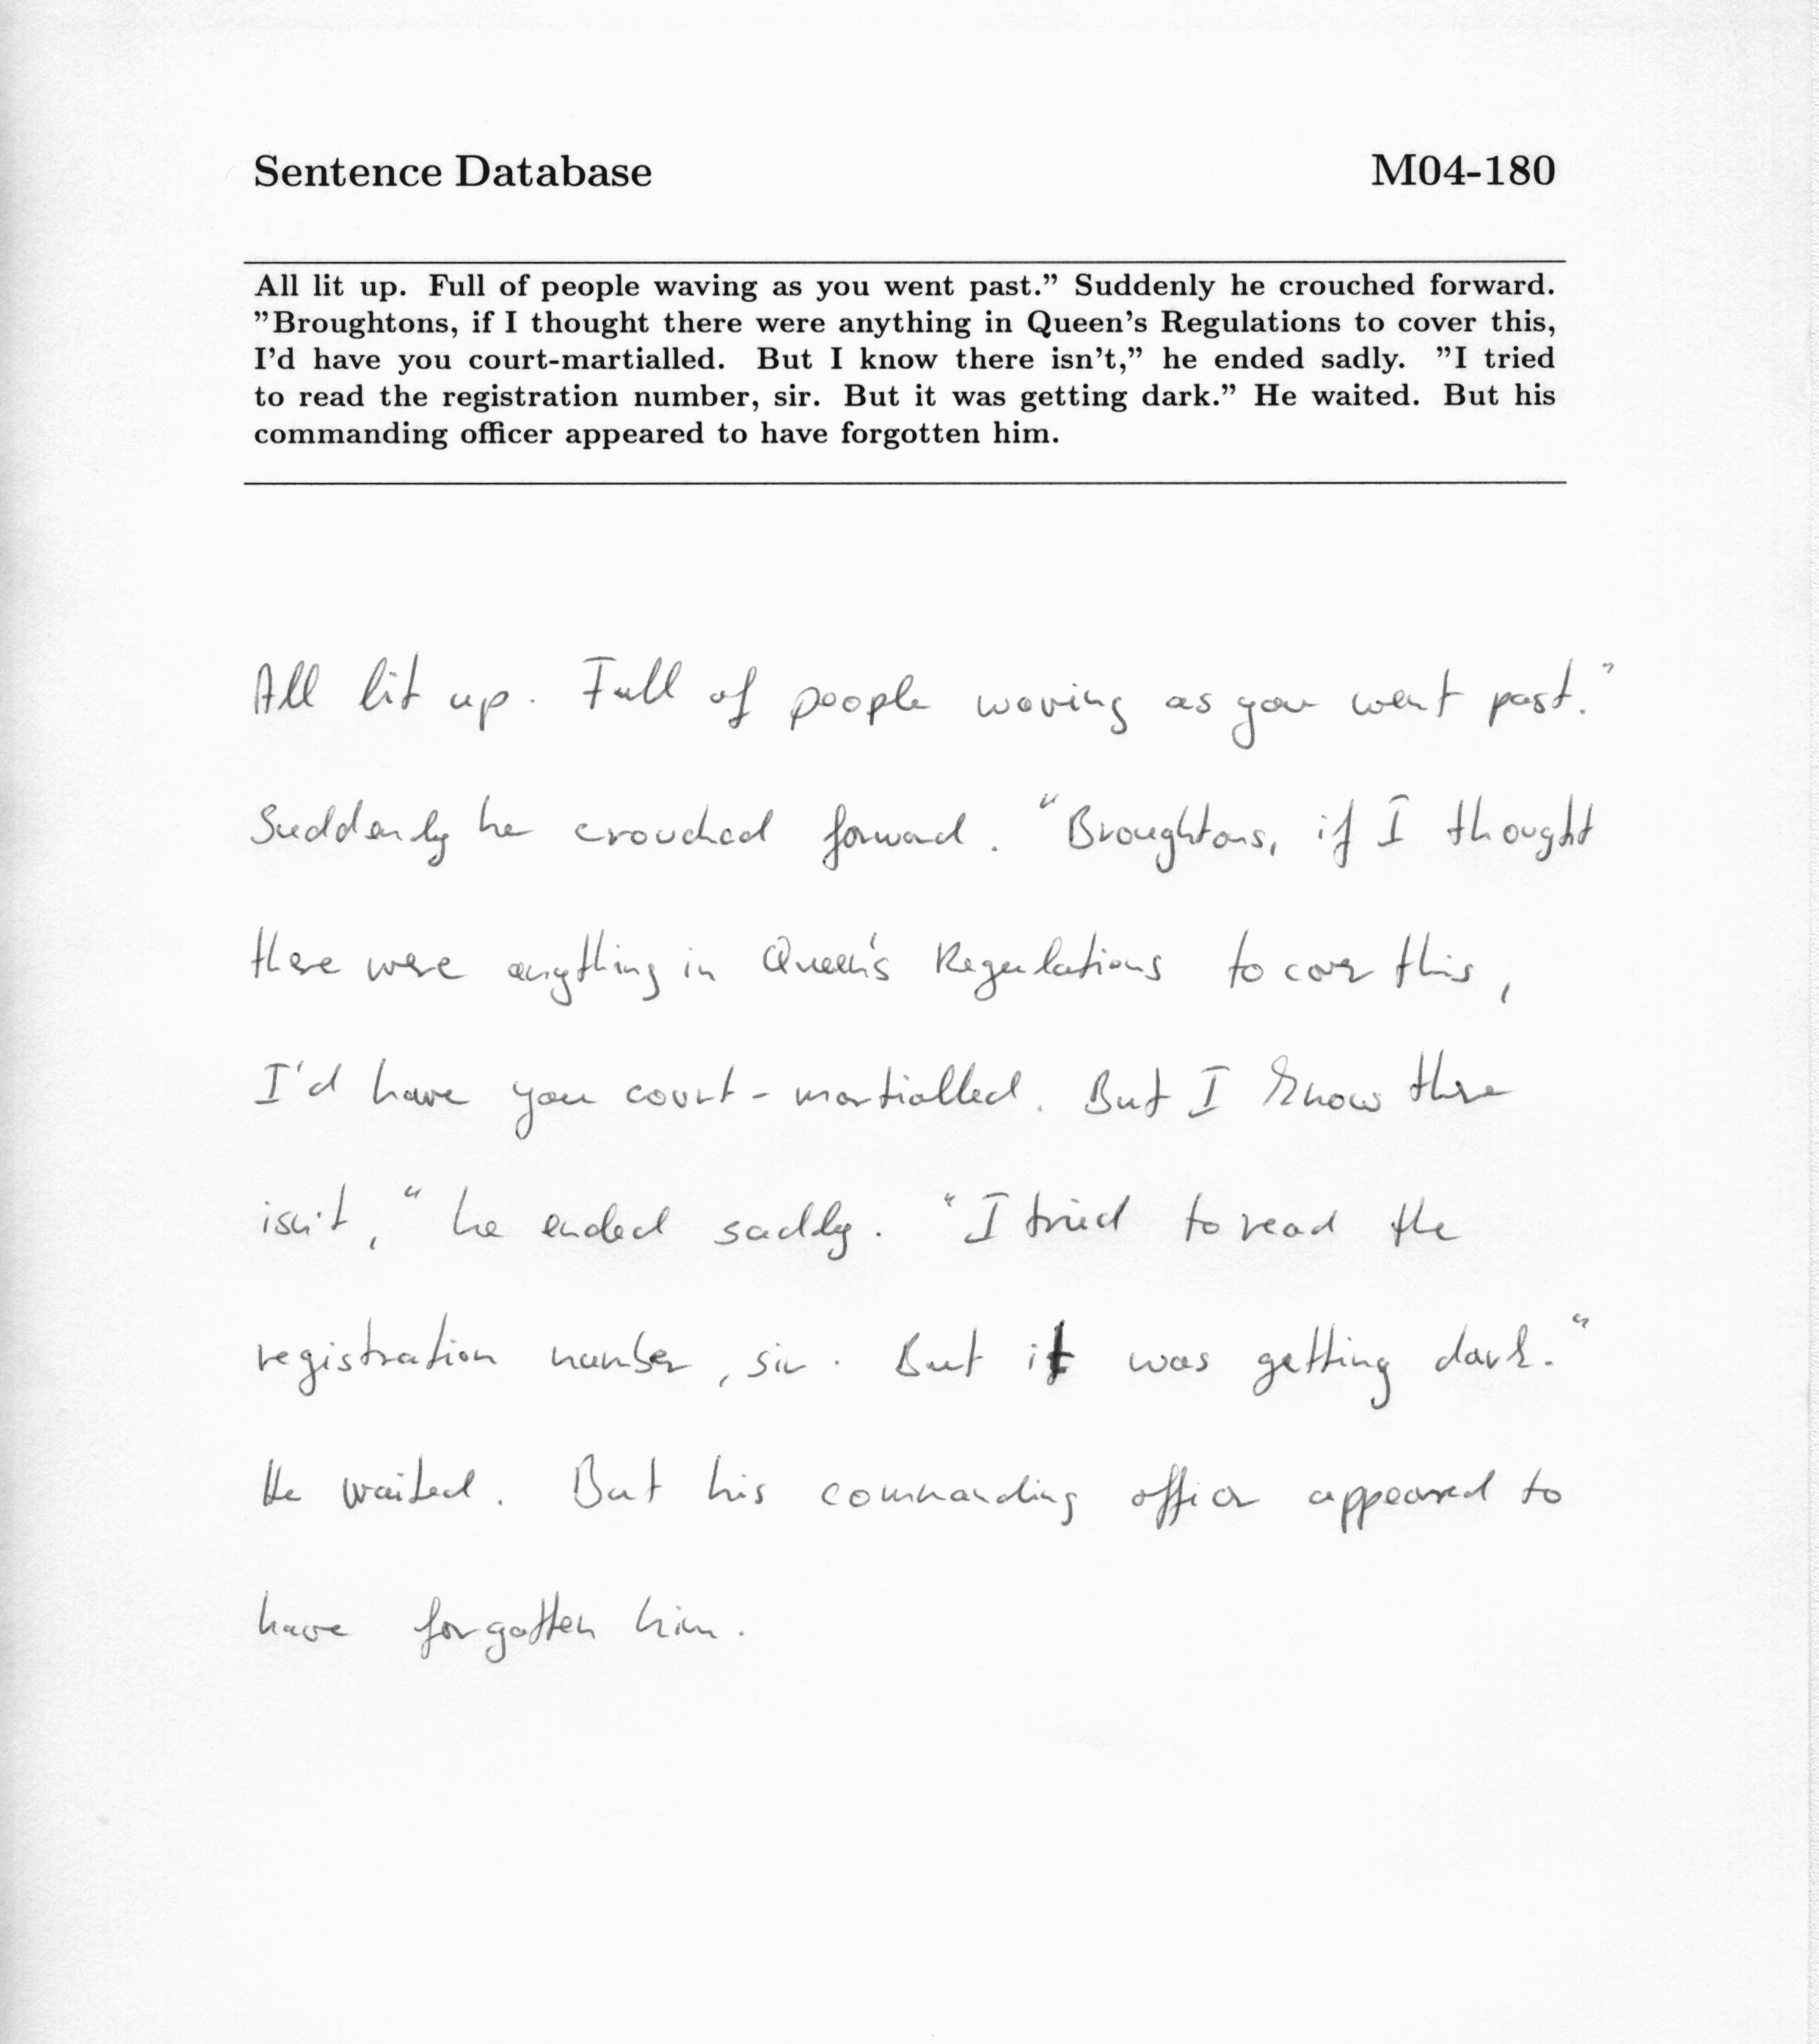 Sentence Database M04-180
All lit up. Full of people waving as you went past.” Suddenly he crouched forward.
”Broughtons, if I thought there were anything in Queen’s Regulations to cover this,
I’d have you court-martialled. But I know there isn’t,” he ended sadly. ”I tried
to read the registration number, sir. But it was getting dark.” He waited. But his
commanding officer appeared to have forgotten him.
All lit up. Full of people waving as you went past."
Suddenly he crouched forward. "Broughtons, if I thought
there were anything in Queen's Regulations to cover this,
I'd have you court-martialled. But I know there
isn't," he ended sadly. "I tried to read the
registration number, sir. But it was getting dark."
He waited. But his commanding officer appeared to
have forgotten him.